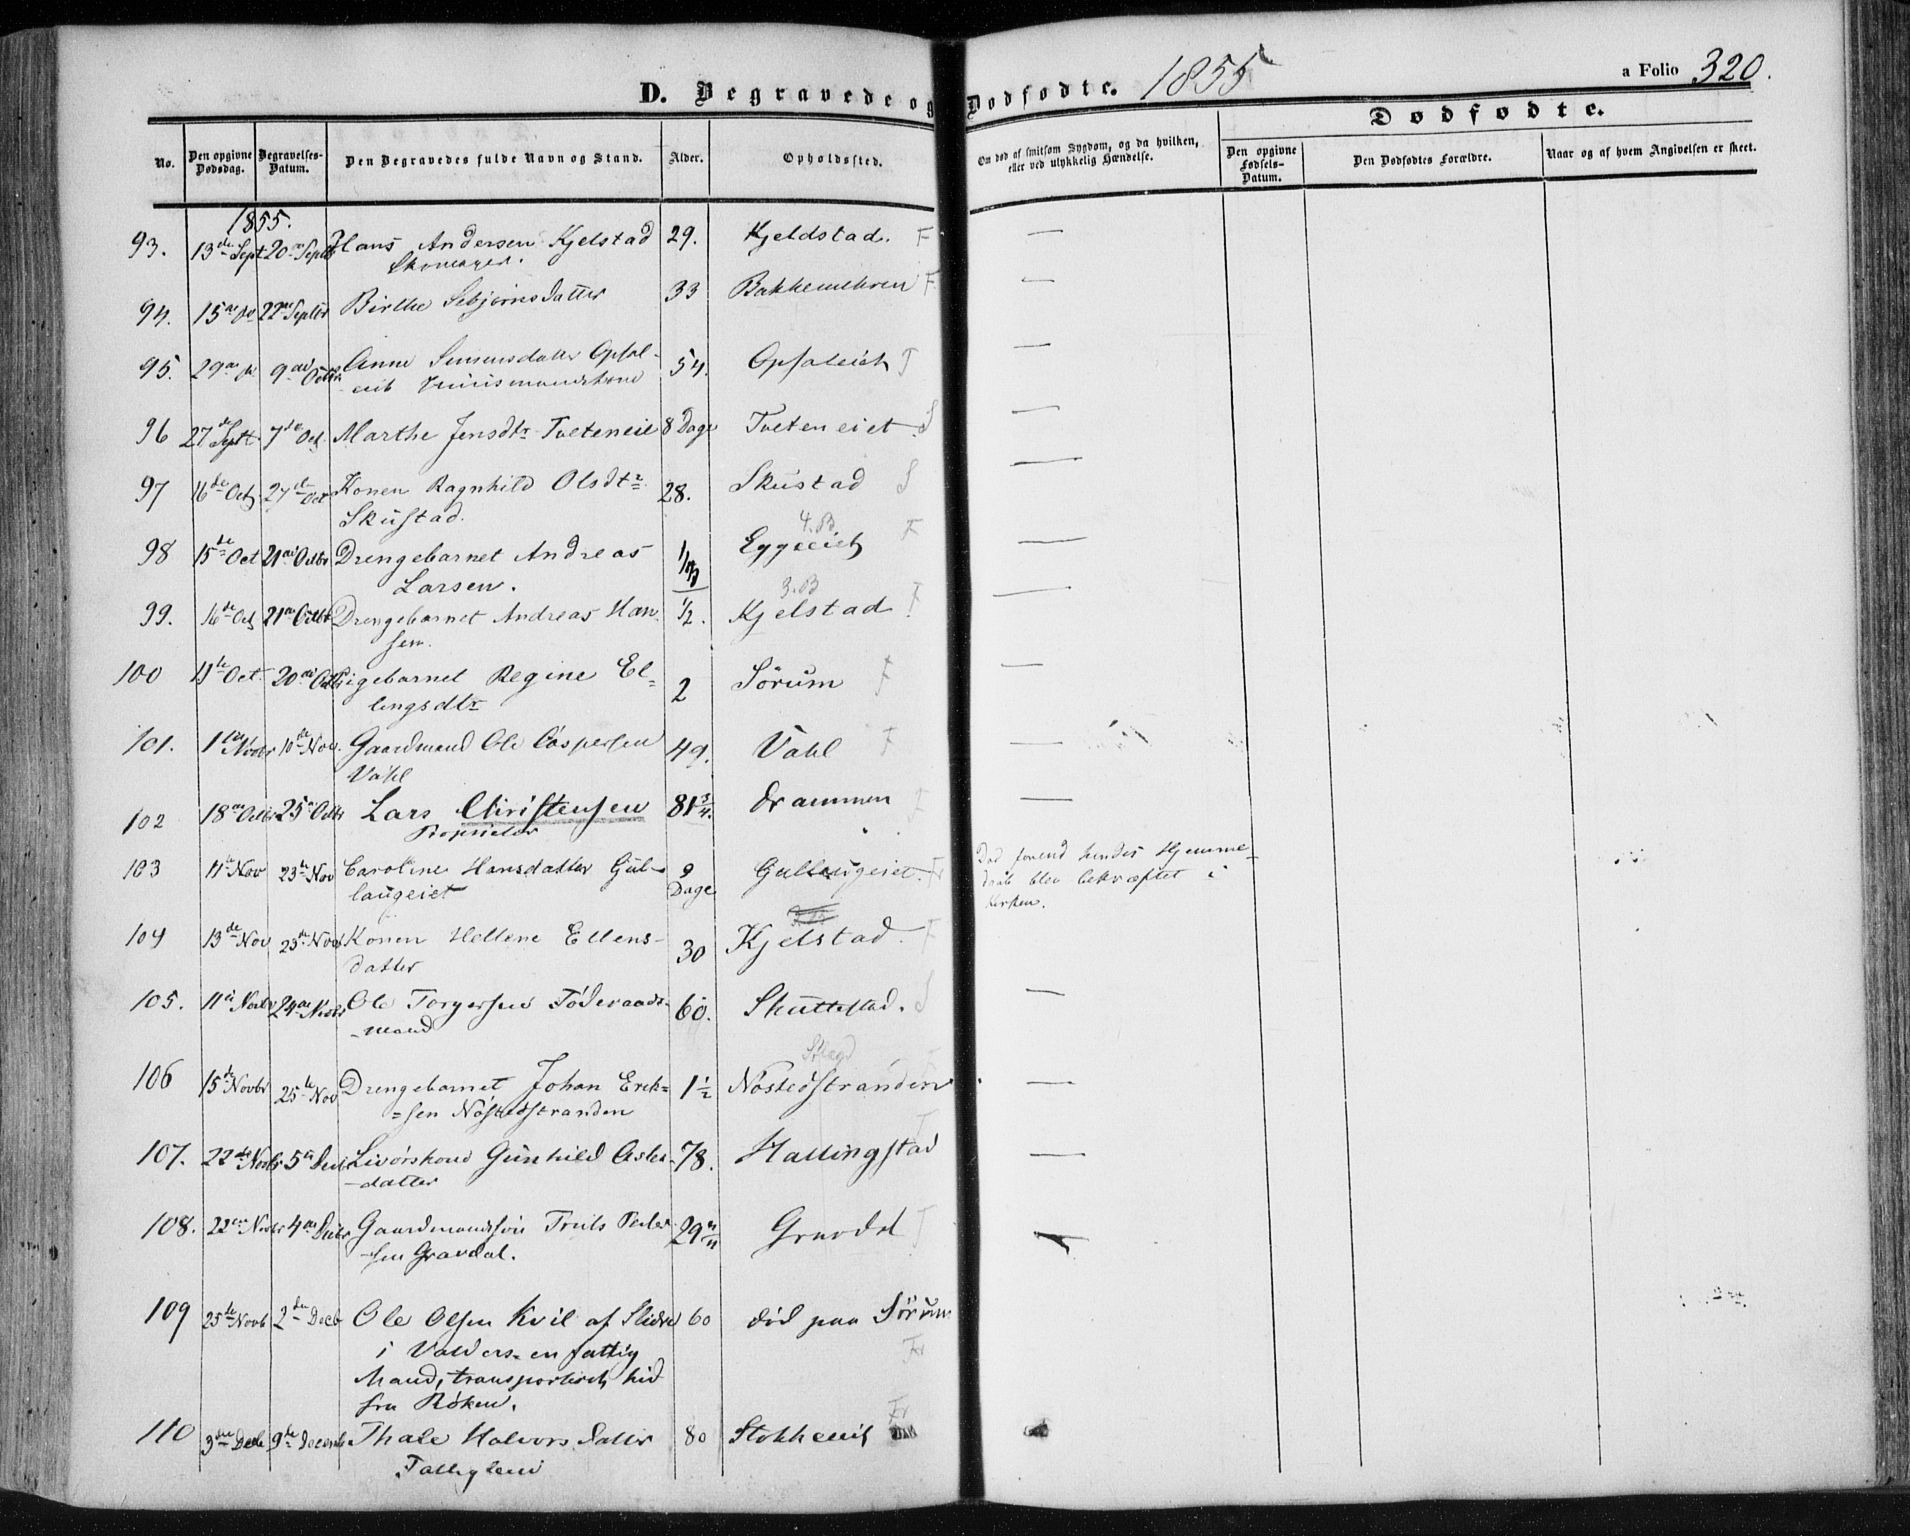 D. Begravede og Dødfødte. 1855 a Folio 320.
Dødfødte.
No. Den opgivne Dødsdag. Begravelses-Datum. Den Begravedes fulde Navn og Stand. Alder. Opholdssted. Om død af smitsom Sygdom, og da hvilken, eller ved ulykkelig Hændelse. Den opgivne Fødsels-Datum. Den Dødfødtes Forældre. Naar og af hvem Angivelsen er skeet.
1855.
93. 13de Sept 20de Septbr Hans Andersen Kjelstad 29. Kjeldstad. F —
Skomager.
94. 15de do 22de Septbr Birthe Sebjørnsdatter 33 Bakkemehren F —
95. 29de do 9de Octbr Anne Simensdatter Opsal- 54. Opsaleiet F —
eiet Huusmandskone
96 27de Septb 7de Oct Marthe Jensdtr Tveteneie 8 Dage Tveteneiet S —
97 16de Oct 27de Oct Konen Ragnhild Olsdtr 28. Skustad S —
Skustad.
4.B.
98 15de Oct 21de Octbr Drengebarnet Andreas Eggeeiet F —
Larsen.
3.B
99. 16de Oct 21de Octbr Drengebarnet Andreas Han 1/2. Kjelstad F —
sen.
100 11te Oct 20de Octb Pigebarnet Regine El= 2 Sørum F —
lingsdtr
101. 1ste Novbr 10de Nov. Gaardmand Ole Caspersen 49. Vahl F —
Vahl
102 18de Octbr 25de Octbr Lars Christensen 81 3/4. Drammen —
Proprietær
103 11te Nov 23de Nov Caroline Hansdatter Gul- 9 Dage Gullaugeiet. Fr Død førend hendes Hjemme-
laugeiet daab blev bekræftet i
Kirken.
104 13de Nov 23de Nov Konen Hellene Ellens- 30 Kjelstad. F
datter
105. 11te Novbr 24de Novbr Ole Torgersen Føderaads- 60. Skuttestad. S —
-mand
106 15de Novbr 25de Nov Drengebarnet Johan Erik= 1 1/2 Nøstedstranden —
=sen Nøstedstranden
107. 22de Novbr 5te Decbr Livørskone Gunhild Asles- 78. Hallingstad F —
-datter
108. 22de Novbr 4de Decbr Gaardmandssøn Truls Peder 29 Gravdal F —
-sen Gravdal.
109 25de Novb 2den Decb Ole Olsen Kvil af Slidre 60 død paa Sørum
i Valders - en fattig Fr
Mand, transporteret hid
fra Røken.
110 3die Decb 9de Decemb Thale Halvorsdatter 80 Stokkeeiet Fr
Fattiglem